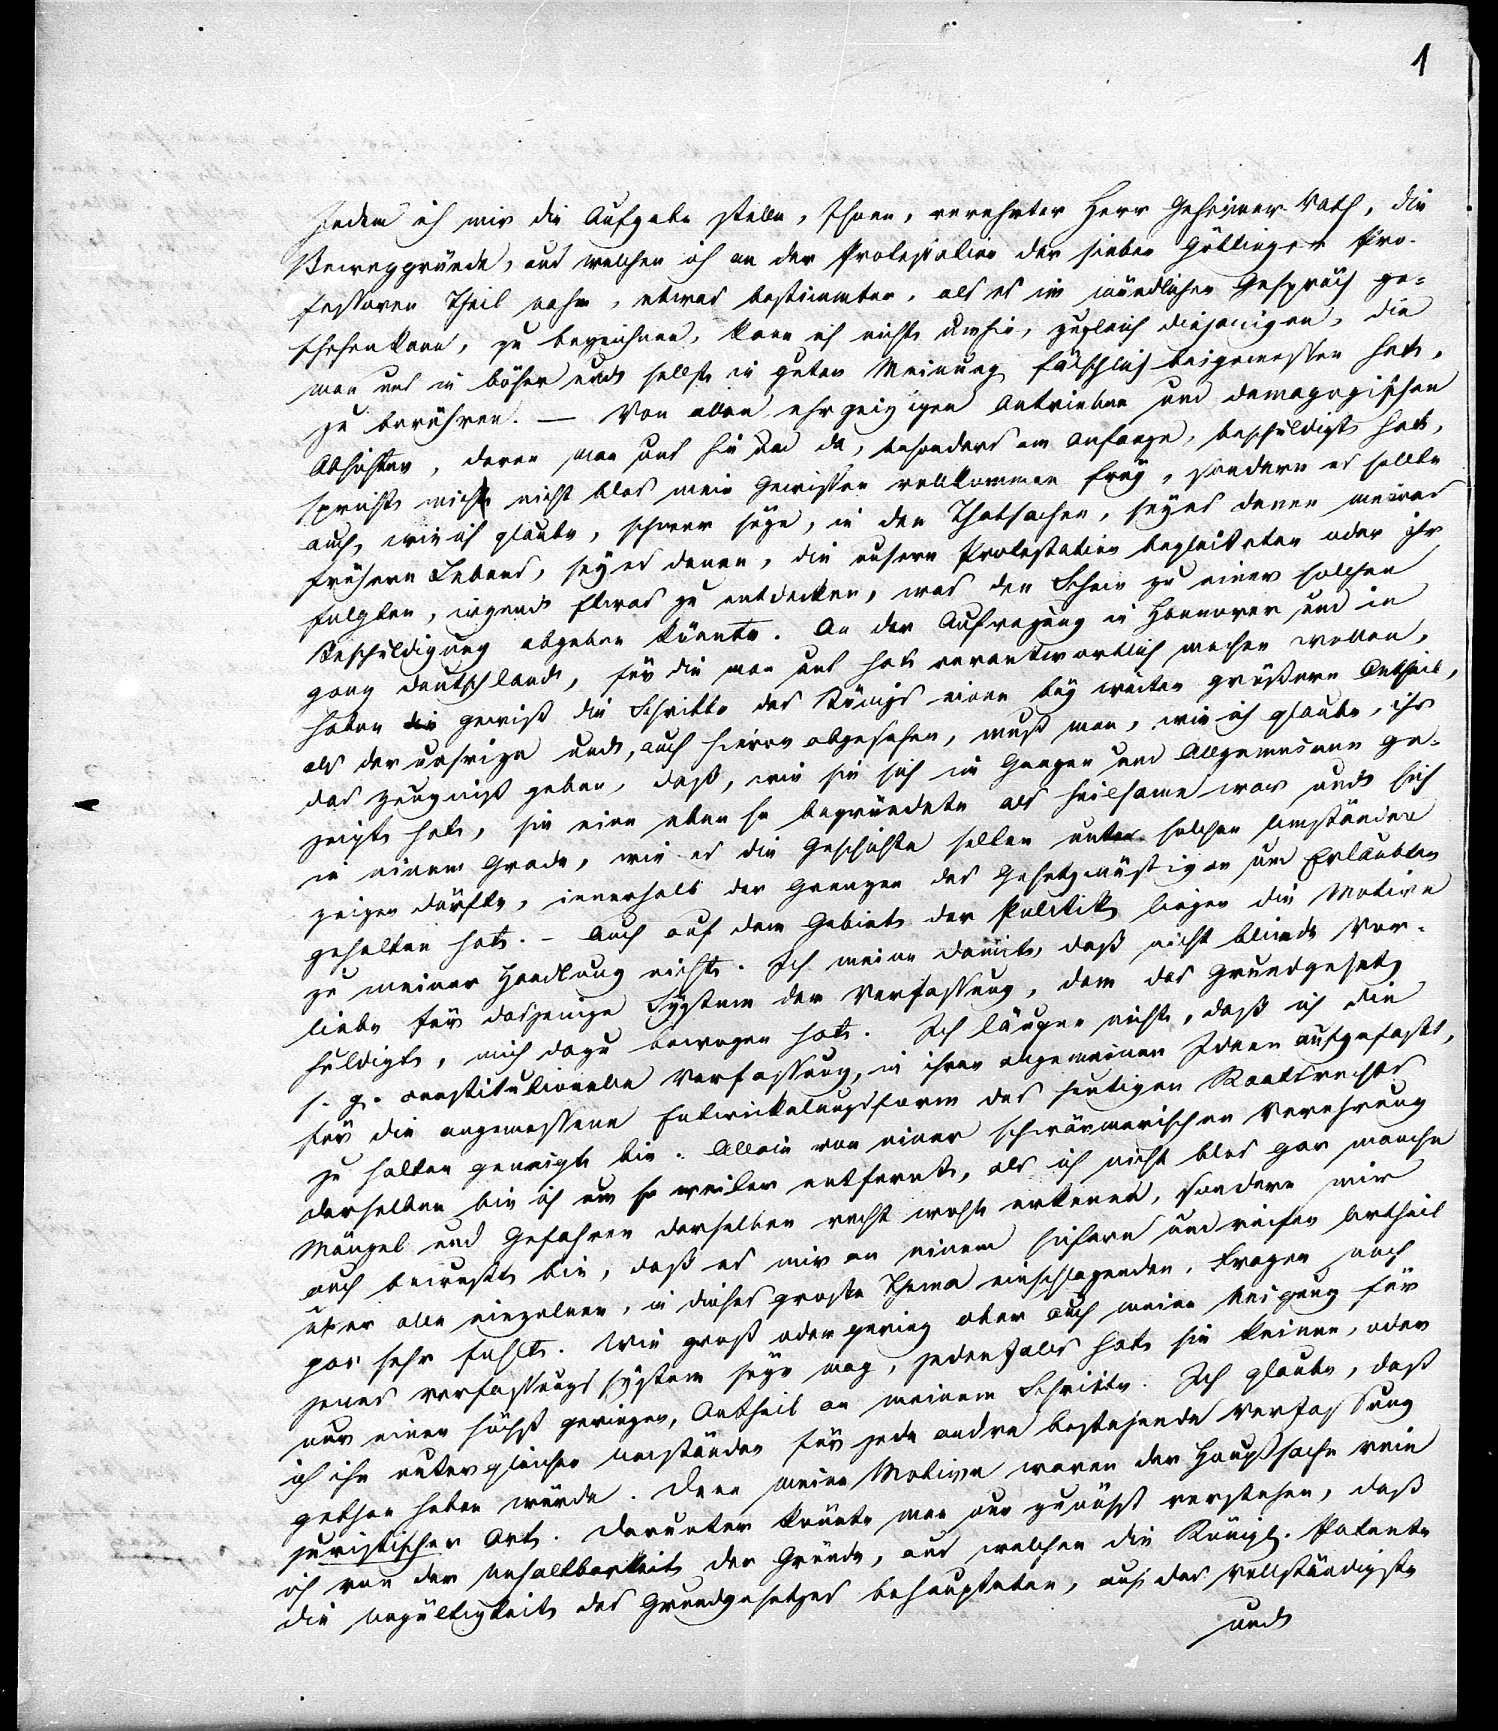 1
Indem ich mir die Aufgabe stelle, Ihnen, verehrter Herr Geheimer Rath, die
Beweggründe, aus welchen ich an der Protestation der sieben Göttinger Pro-
fessoren Theil nahm, etwas bestimmter, als es im mündlichen Gespräch ge-
schehen kann, zu bezeichnen, kann ich nicht umhin, zugleich diejenigen, die
man uns in böser und selbst in guter Meinung fälschlich beigemessen hat,
zu berühren. — Von allen ehrgeizigen Antrieben und demagogischen
Absichten, deren man uns hie und da, besonders am Anfange, beschuldigt hat,
spricht mich nicht blos mein Gewissen vollkommen frey, sondern es sollte
auch, wie ich glaube, schwer seyn, in den Thatsachen, sey es denen meines
frühern Lebens, sey es denen, die unsere Protestation begleiteten oder ihr
folgten, irgend Etwas zu entdecken, was den Schein zu einer solchen
Beschuldigung abgeben könnte. An der Aufregung in Hannover und in
ganz Deutschland, für die man uns hat verantwortlich machen wollen,
haben gewiß die Schritte des Königs einen bey weiten größern Antheil,
als der unsrige und, auch hievon abgesehen, muß man, wie ich glaube, ihr
das Zeugniß geben, daß, wie sie sich im Ganzen und Allgemeinen ge-
zeigt hat, sie eine eben so begründete als heilsame war und sich
in einem Grade, wie es die Geschichte selten unter solchen Umständen
zeigen dürfte, innerhalb der Grenzen des Gesetzmäßigen und Erlaubten
gehalten hat. — Auch auf dem Gebiet der Politik liegen die Motive
zu meiner Handlung nicht. Ich meine damit, daß nicht blinde Vor-
liebe für dasjenige System der Verfassung, dem das Grundgesetz
huldigt, mich dazu bewogen hat. Ich läugne nicht, daß ich die
s. g. constitutionelle Verfassung, in ihren allgemeinen Ideen aufgefaßt,
für die angemessene Entwickelungsform des heutigen Staatsrechts
zu halten geneigt bin. Allein von einer schwärmerischen Verehrung
derselben bin ich um so weiter entfernt, als ich nicht blos gar manche
Mängel und Gefahren derselben recht wohl erkenne, sondern mir
auch bewußt bin, daß es mir an einem sichern und reifen Urtheil
über alle einzelnen, in dieses große Thema einschlagenden, Fragen noch
gar sehr fehlt. Wie groß oder gering aber auch meine Neigung für
jenes Verfassungssystem seyn mag, jedenfalls hat sie keinen, oder
nur einen höchst geringen, Antheil an meinem Schritte. Ich glaube, daß
ich ihn unter gleichen Umständen für jede andre bestehende Verfassung
gethan haben würde. Denn meine Motive waren der Hauptsache rein
juristischer Art. Darunter könnte man nun zunächst verstehen, daß
ich von der Unhaltbarkeit der Gründe, aus welchen die Königl. Patente
die Ungültigkeit des Grundgesetzes behaupteten, auf das Vollständigste
und